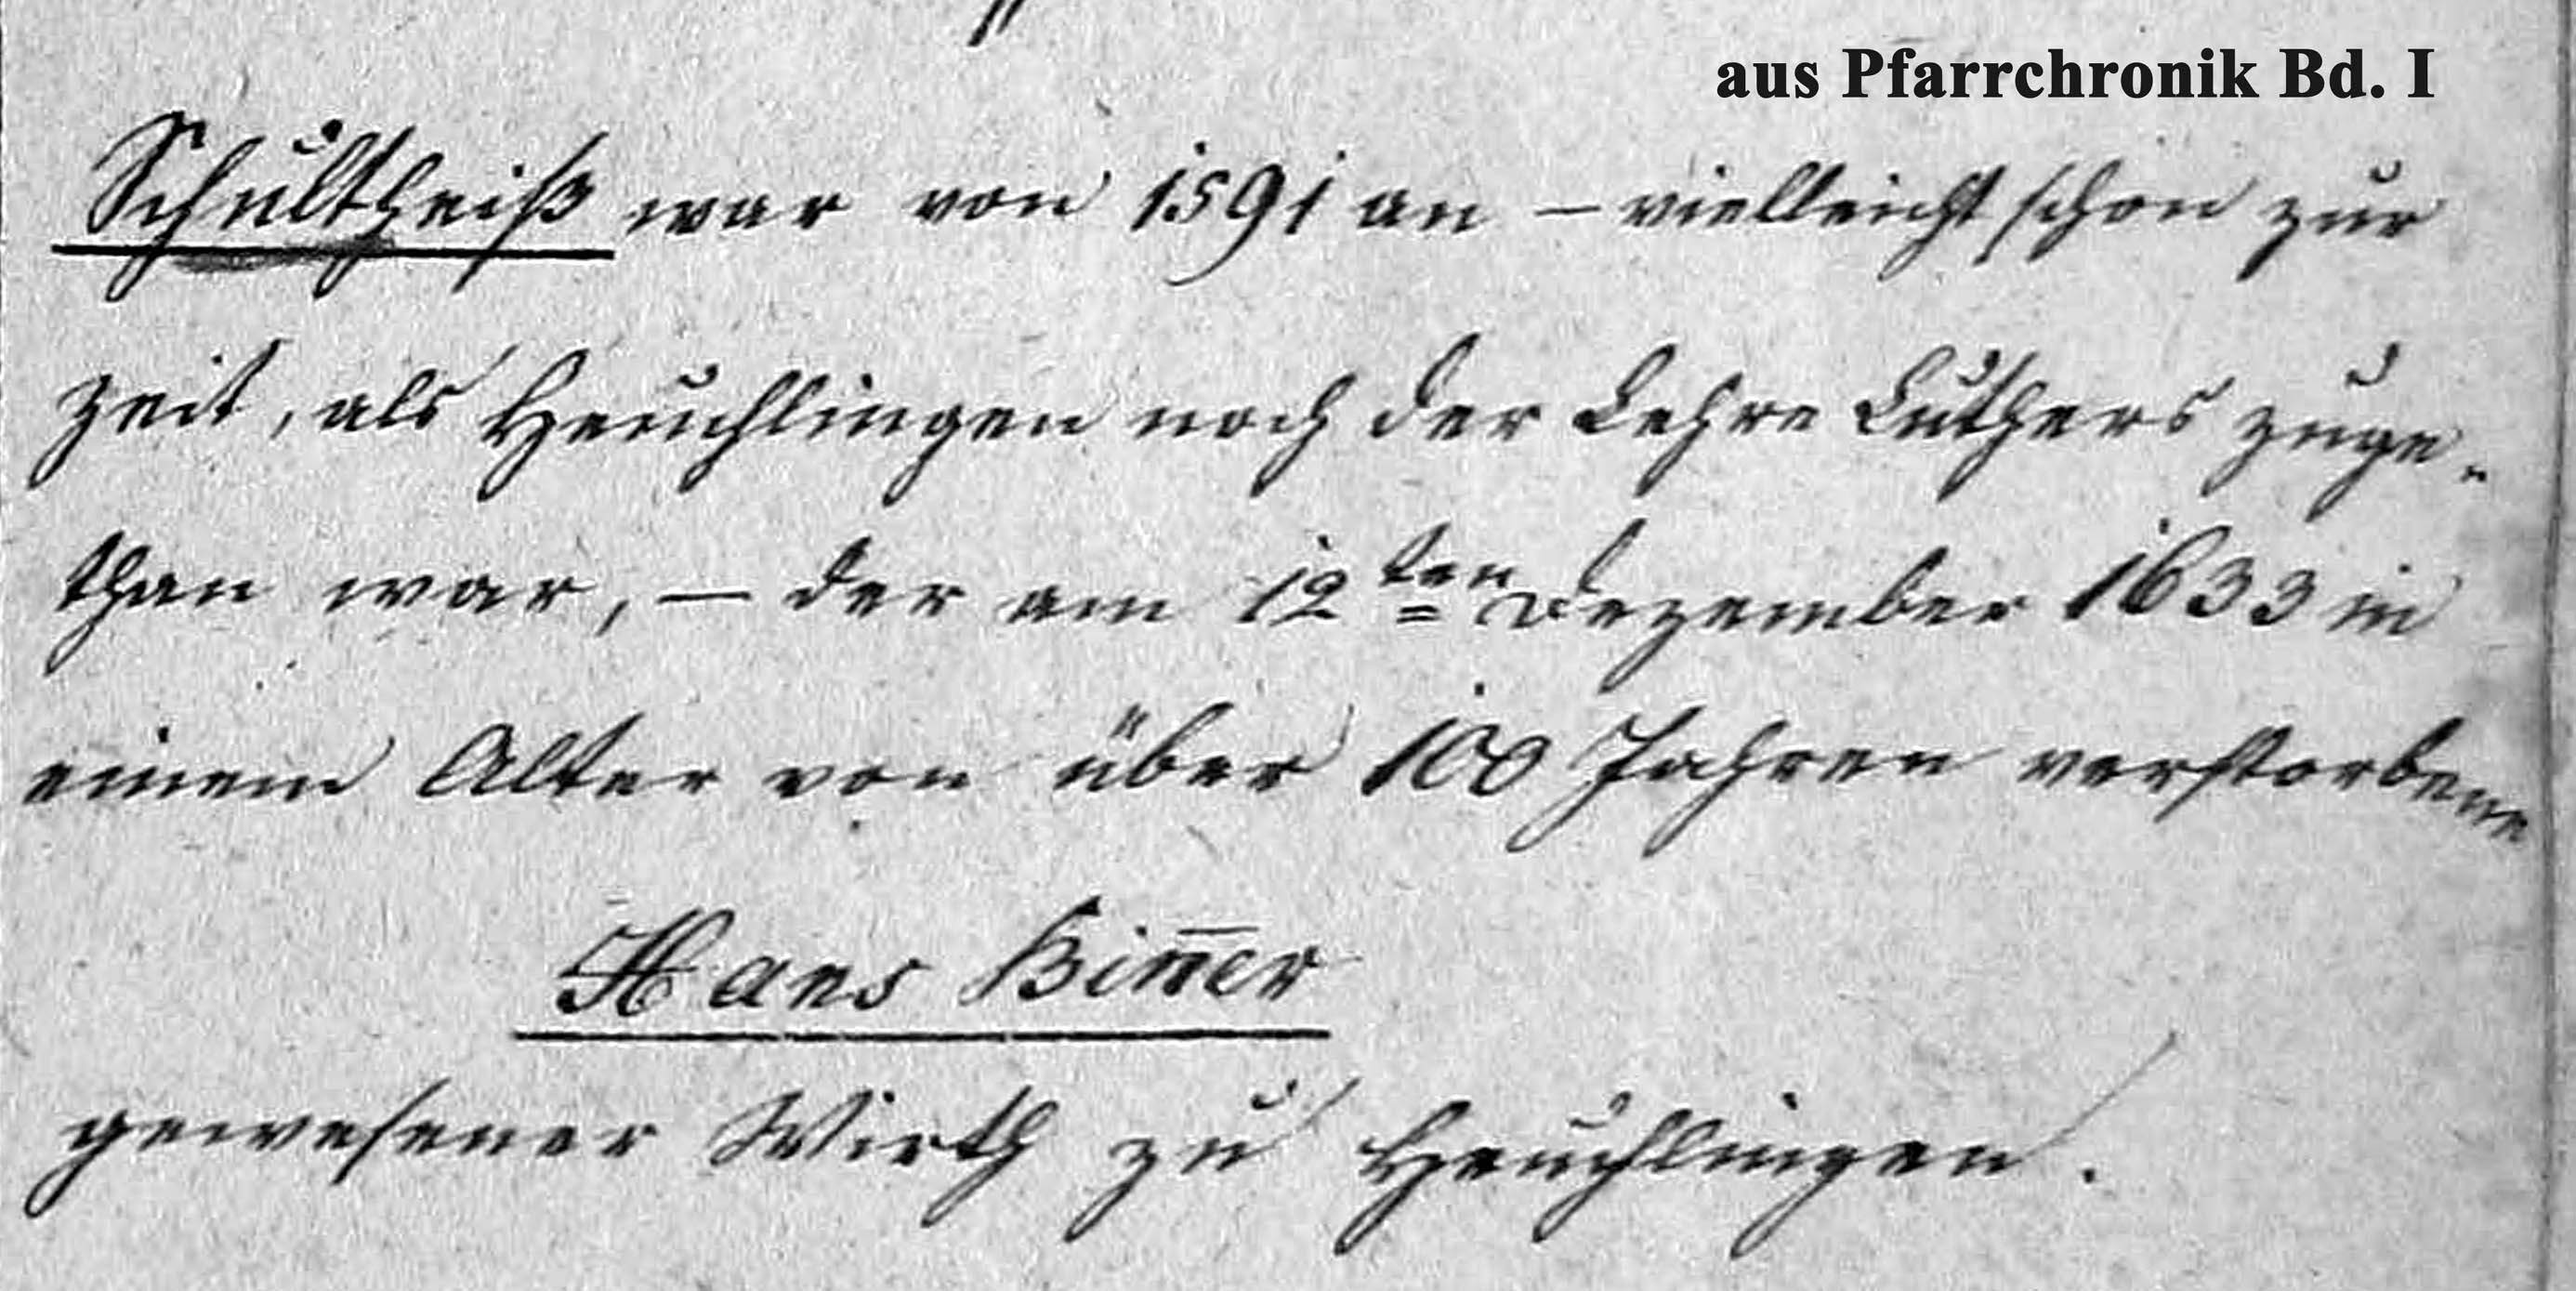 aus Pfarrchronik Bd. I
Schultheiß war von 1591 an – vielleicht schon zur
Zeit, als Heuchlingen noch der Lehre Luthers zuge-
than war, – der am 12ten Dezember 1633 in
einem Alter von über 100 Jahren verstorbene
Hans Bin̅er
gewesener Wirth zu Heuchlingen.